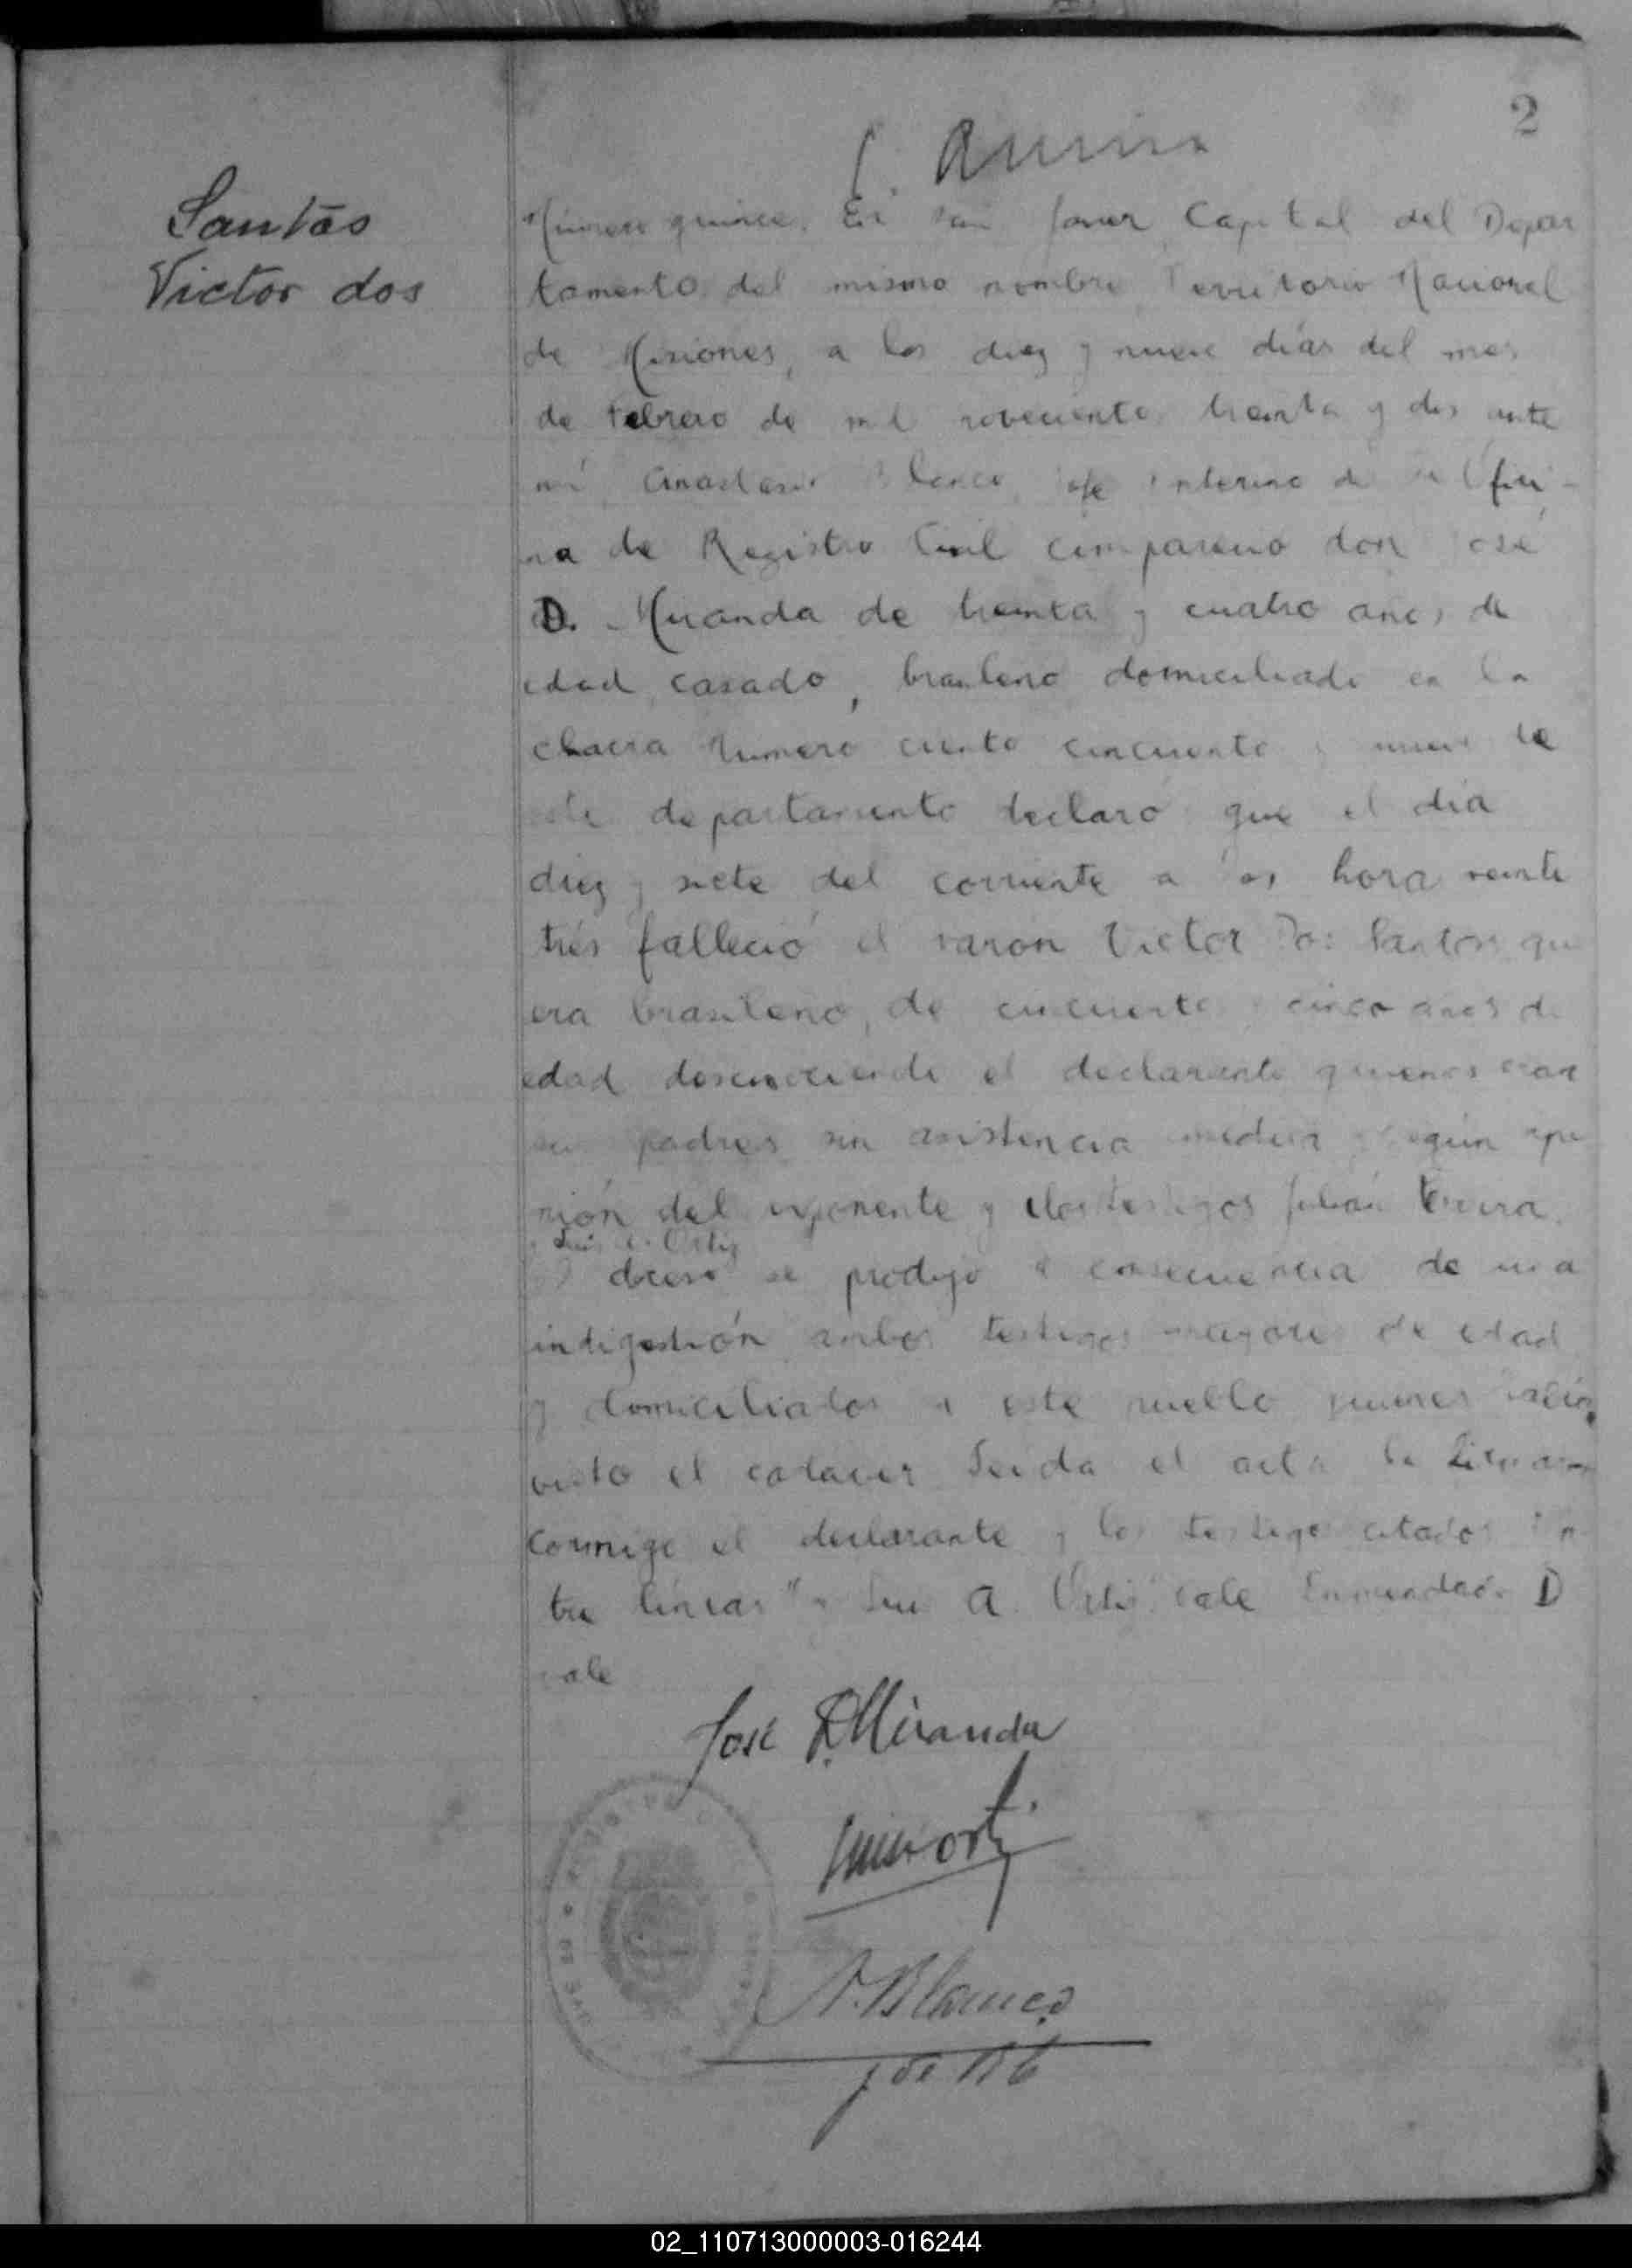 2
Santos
Victor dos
Número quince. En San Javier Capital del Depar
tamento del mismo nombre Territorio Nacional
de Misiones, a los diez y nueve días del mes
de Febrero de mil novecientos treinta y dos ante
mí Anastasio Blanco, Jefe interino de la Ofici-
na de Registro Civil compareció don José
D. Miranda de treinta y cuatro años de
edad, casado, brasileño domiciliado en la
chacra número ciento cincuenta y nueve de
este departamento declaró que el día
diez y siete del corriente a las hora veinte
tres falleció el varón Victor Dos Santos que
era brasileño, de cincuenta y cinco años de
edad desconociendo el declarante quienes eran
sus padres sin asistencia médica y según opi
nión del exponente y los testigos Julián
y Luis A. Ortiz
deceso se produjo a consecuencia de una
indigestión ambos testigos mayores de edad
y domiciliados en este pueblo quienes
visto el cadaver Leida el acta la firmaron
conmigo el declarante y los testigos citados En
tre lineas "y Luis A. Ortiz" vale Enmendado D
vale
José D. Miranda
Luis Ortiz
A. Blanco
02_110713000003-016244